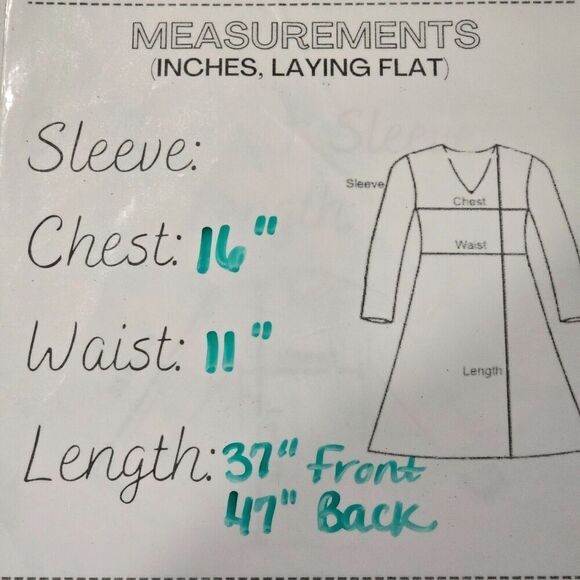 MEASUREMENTS
(INCHES, LAYING FLAT)
Sleeve:
Chest: 16"
Waist: 11"
Length: 37" Front
47" Back
Sleeve
Chest
Waist
Length